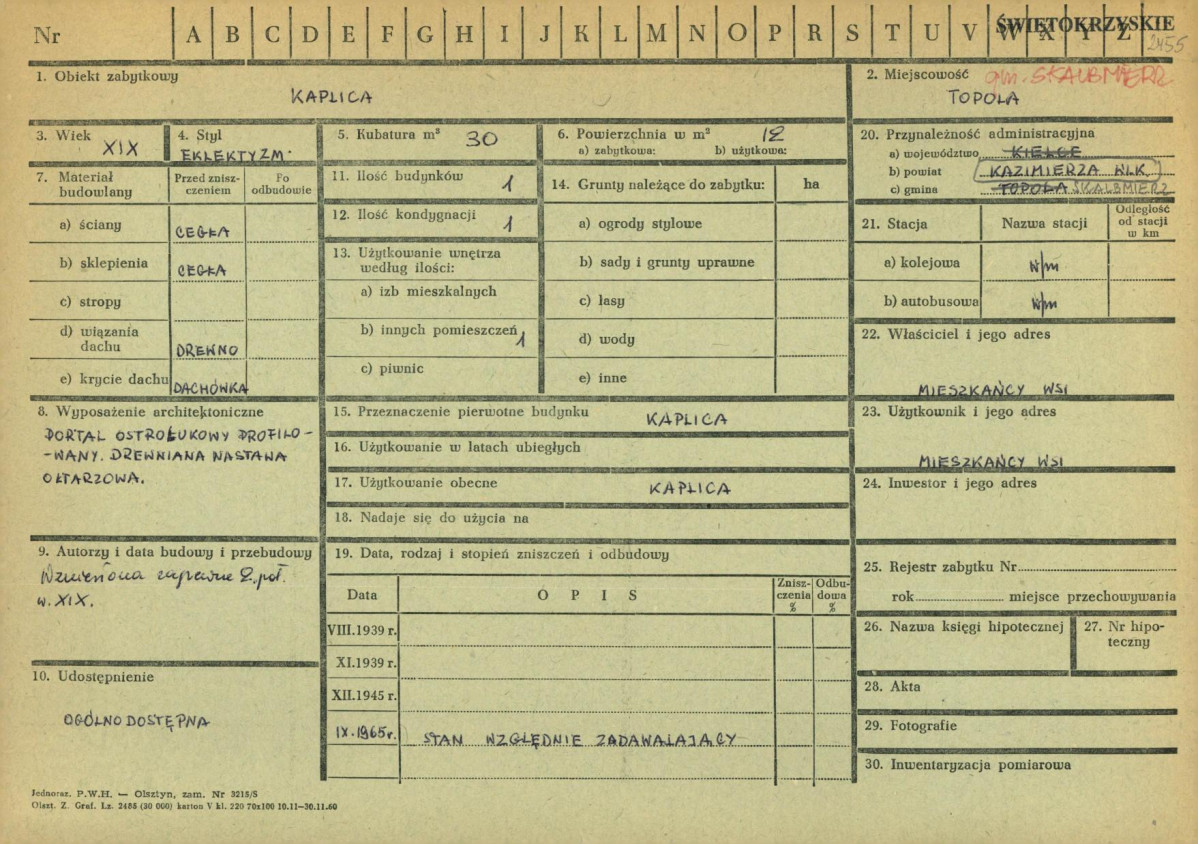 Nr A B C D E F G H I J K L M N O P R S T U V W X Y Z ŚWIĘTOKRZYSKIE
2455
1. Obiekt zabytkowy
KAPLICA
2. Miejscowość gm. SKALBMIERZ
TOPOLA
3. Wiek
XIX
4. Styl
EKLEKTYZM.
5. Kubatura m³ 30
6. Powierzchnia w m² 12
a) zabytkowa: b) użytkowa:
20. Przynależność administracyjna
a) województwo KIELCE
b) powiat KAZIMIERZA WLK.
c) gmina TOPOLA SKALBMIERZ
7. Materiał budowlany
Przed znisz-
czeniem
Po
odbudowie
a) ściany CEGŁA
b) sklepienia CEGŁA
c) stropy
d) wiązania
dachu DREWNO
e) krycie dachu DACHÓWKA
11. Ilość budynków 1
12. Ilość kondygnacji 1
13. Użytkowanie wnętrza
według ilości:
a) izb mieszkalnych
b) innych pomieszczeń 1
c) piwnic
14. Grunty należące do zabytku: ha
a) ogrody stylowe
b) sady i grunty uprawne
c) lasy
d) wody
e) inne
21. Stacja Nazwa stacji
Odległość
od stacji
w km
a) kolejowa w/m
b) autobusowa w/m
22. Właściciel i jego adres
MIESZKAŃCY WSI
8. Wyposażenie architektoniczne
PORTAL OSTROŁUKOWY PROFILO-
-WANY. DREWNIANA NASTAWA
OŁTARZOWA.
15. Przeznaczenie pierwotne budynku KAPLICA
16. Użytkowanie w latach ubiegłych
17. Użytkowanie obecne KAPLICA
18. Nadaje się do użycia na
23. Użytkownik i jego adres
MIESZKAŃCY WSI
24. Inwestor i jego adres
9. Autorzy i data budowy i przebudowy
Wzniesiona zapewne 2. poł.
w. XIX.
19. Data, rodzaj i stopień zniszczeń i odbudowy
Data O P I S
Znisz-
czenia
%
Odbu-
dowa
%
VIII.1939 r.
XI.1939 r.
XII.1945 r.
IX.1965 r. STAN WZGLĘDNIE ZADAWALAJĄCY
25. Rejestr zabytku Nr
rok miejsce przechowywania
26. Nazwa księgi hipotecznej
27. Nr hipo-
teczny
10. Udostępnienie
OGÓLNODOSTĘPNA
28. Akta
29. Fotografie
30. Inwentaryzacja pomiarowa
Jednoraz. P.W.H. — Olsztyn, zam. Nr 3215/S
Olszt. Z. Graf. Lz. 2455 (30 000) karton V kl. 220 70x100 10.11—30.11.60